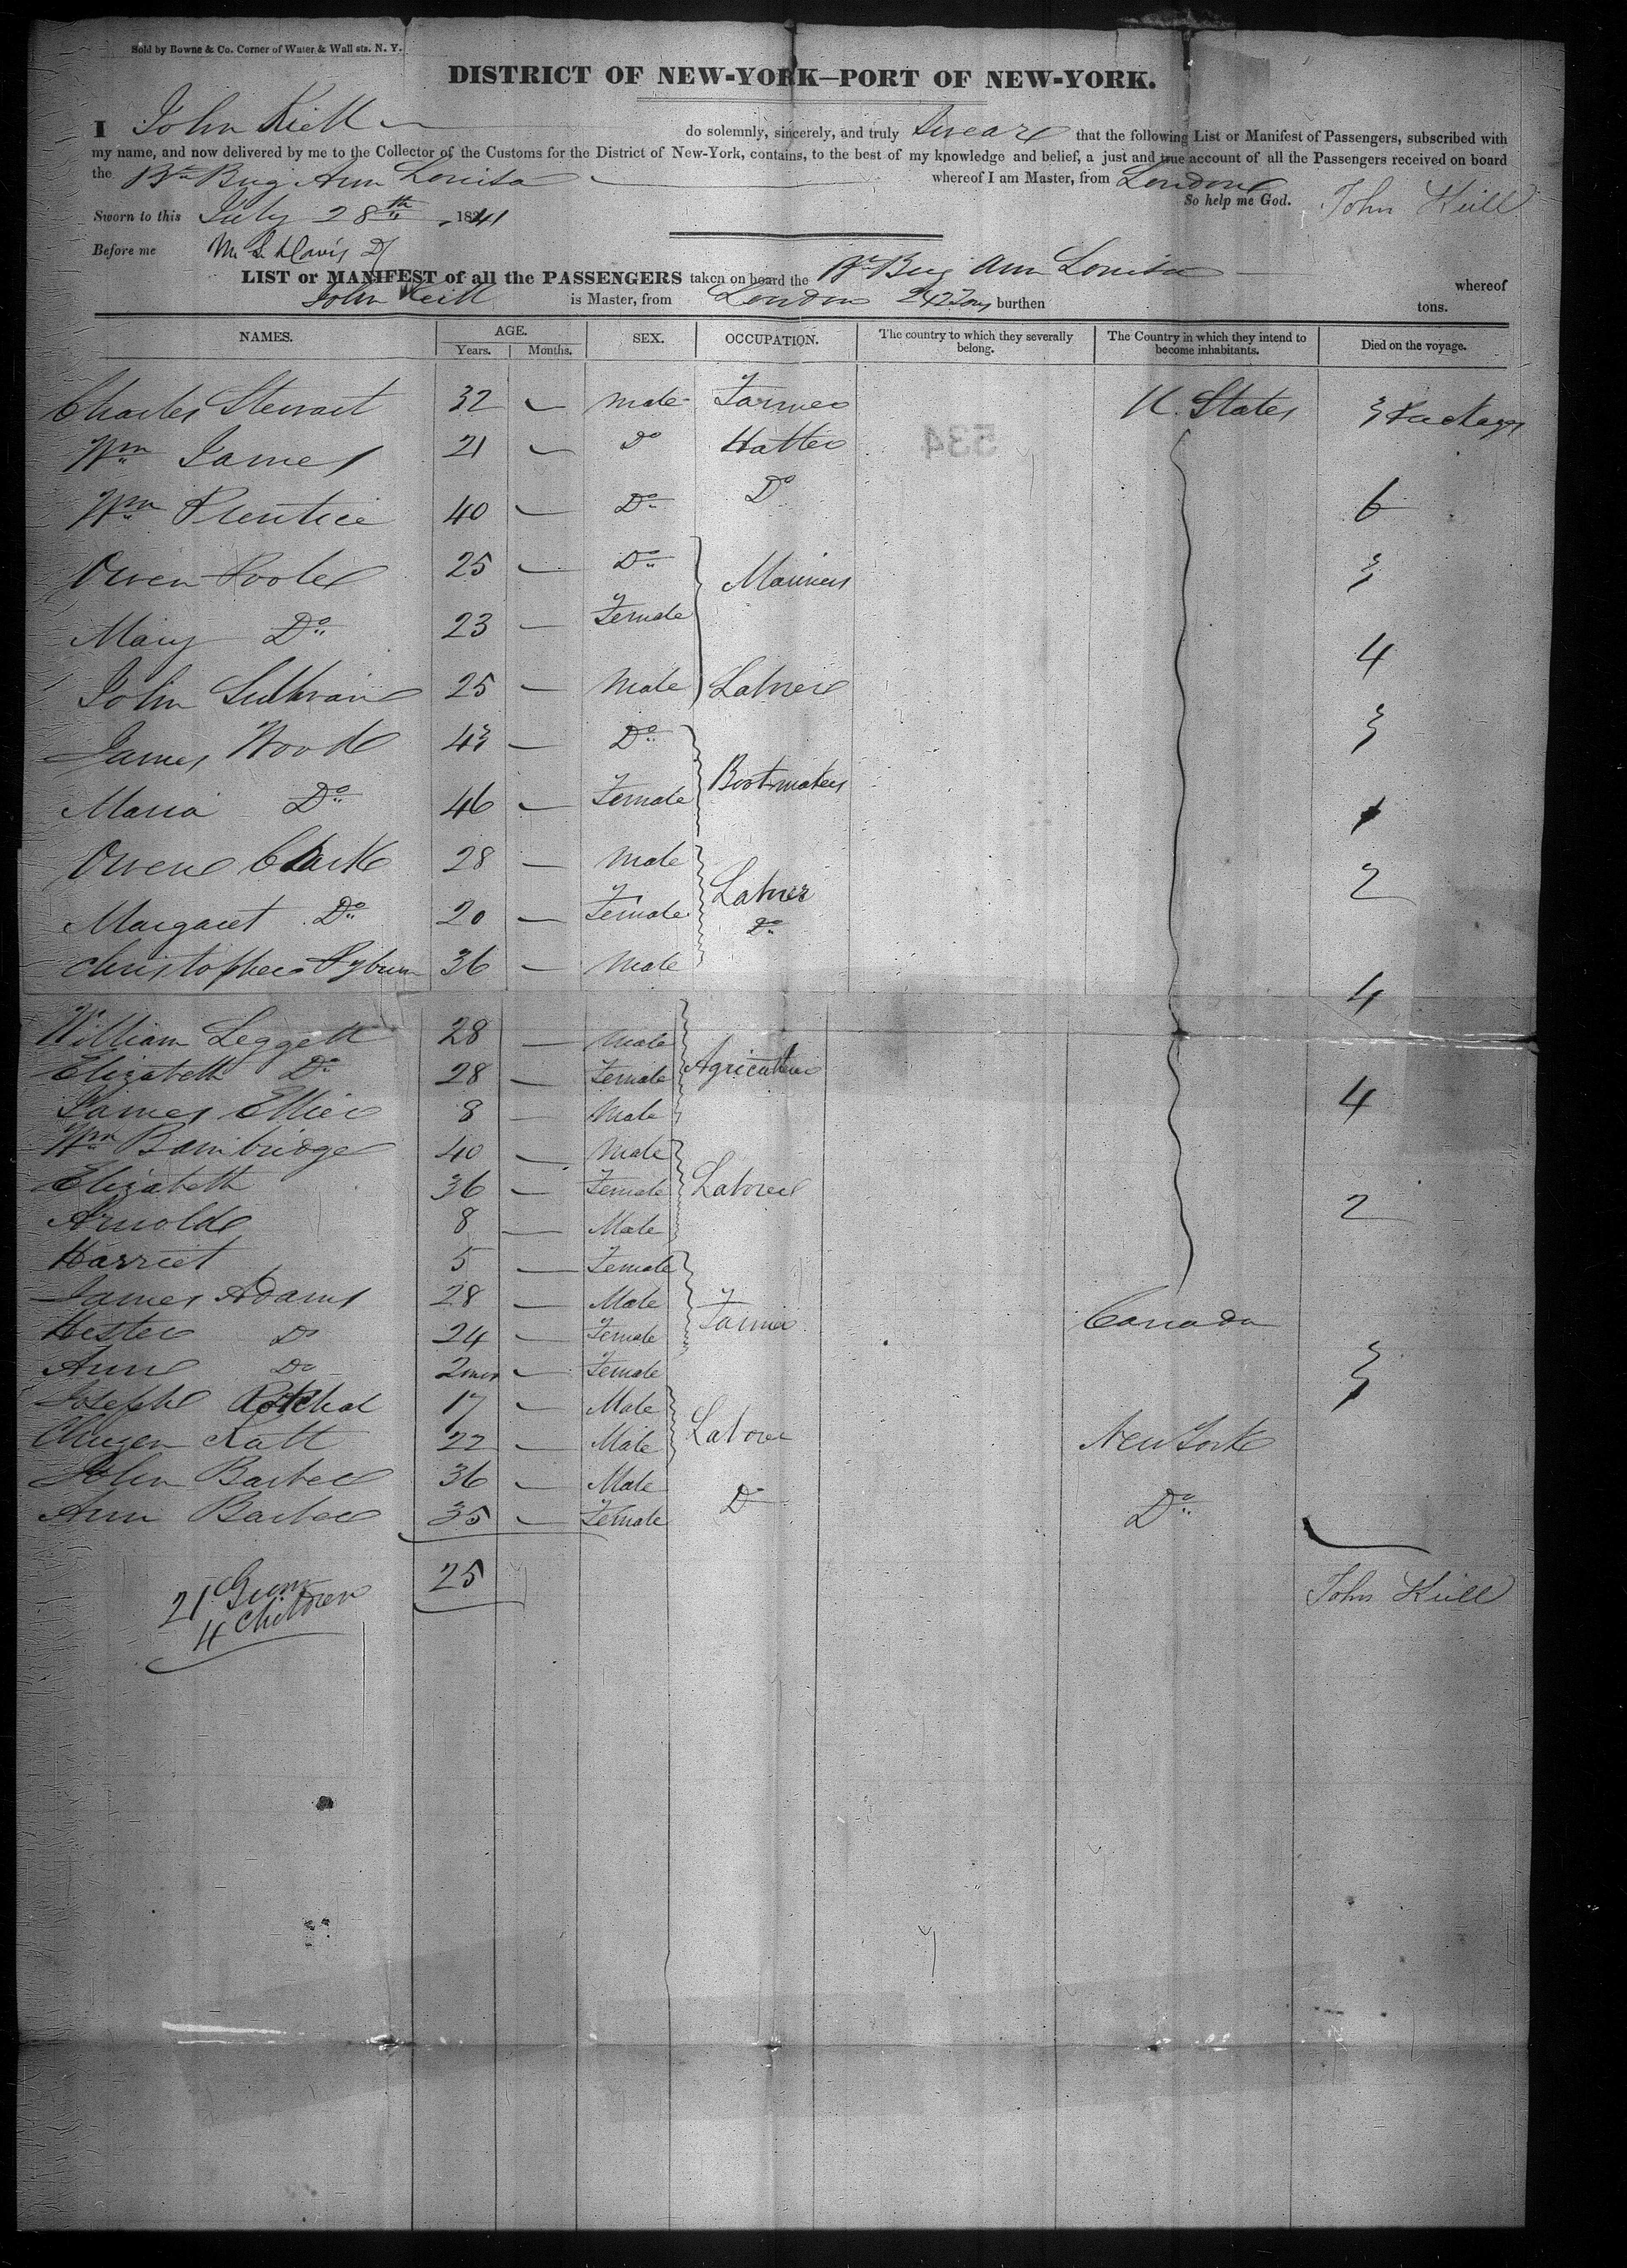 Sold by Bowne & Co. Corner of Water & Wall sts. N. Y.
DISTRICT OF NEW-YORK—PORT OF NEW-YORK.
I John Kiell do solemnly, sincerely, and truly Swear that the following List or Manifest of Passengers, subscribed with
my name, and now delivered by me to the Collector of the Customs for the District of New-York, contains, to the best of my knowledge and belief, a just and true account of all the Passengers received on board
the Br Brig Ann Louisa whereof I am Master, from London
So help me God. John Kiell
Sworn to this July 28th 1841
Before me M. L. Davis
LIST or MANIFEST of all the PASSENGERS taken on board the Br Brig Ann Louisa whereof
John Kiell is Master, from London 242 Tons burthen tons.
NAMES. AGE. SEX. OCCUPATION. The country to which they severally belong. The Country in which they intend to become inhabitants. Died on the voyage.
Years. Months.
Charles Stewart 32 — Male Farmer U. States 3 Packages
Wm James 21 — Do Hatter
534
Wm Prentice 40 — Do Do 6
Owen Poole 25 — Do Mariners 3
Mary Do 23 — Female 4
John Sullivan 25 — Male Laborer
James Wood 43 — Do 3
Maria Do 46 — Female Bootmakers 1
Owen Clark 28 — Male 2
Margaret Do 20 — Female Laborer
Do
Christopher Pybum 36 — Male 4
William Leggett 28 — Male
Elizabeth Do 28 — Female Agriculturer
James Ellier 8 — Male 4
Wm Bambridge 40 — Male
Elizabeth 36 — Female Laborer
Arnold 8 — Male 2
Harriet 5 — Female
James Adams 28 — Male Farmer Canada
Hester Do 24 — Female
Ann Do 2 mos — Female 3
Joseph 17 — Male
Ratt 22 — Male Laborer New York
John Barber 36 — Male
Ann Barber 35 — Female Do Do
25
21
4 Children
John Kiell